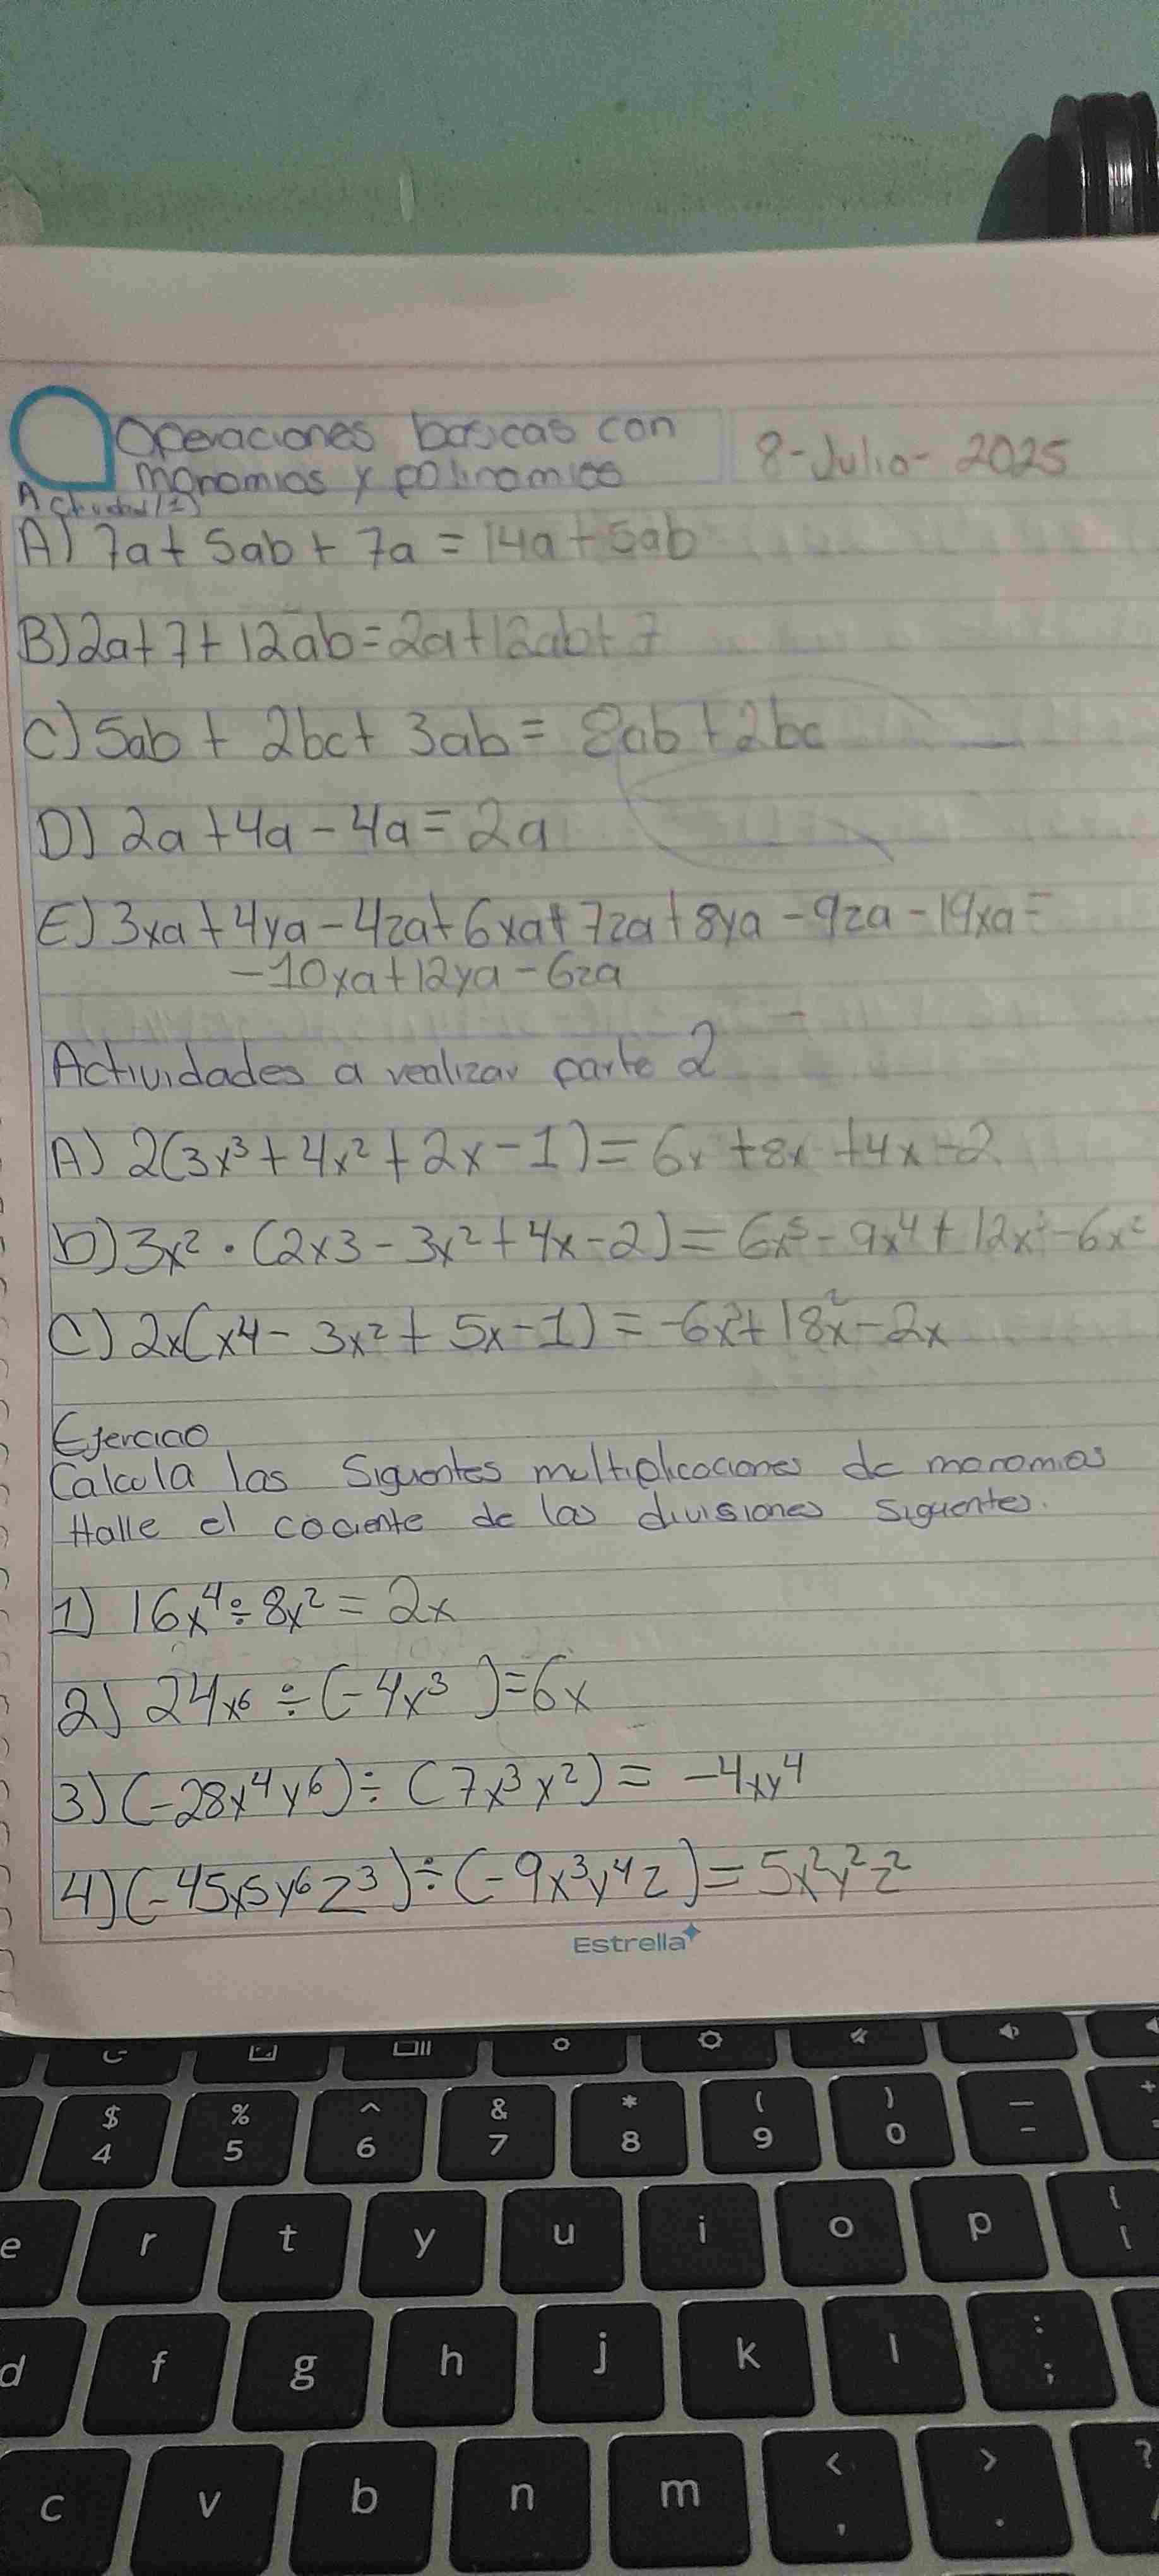 Operaciones basicas con
monomios y polinomios
8-Julio-2025
Actividad (1)
A) 7a + 5ab + 7a = 14a + 5ab
B) 2a + 7 + 12ab = 2a + 12ab + 7
C) 5ab + 2bc + 3ab = 8ab + 2bc
D) 2a + 4a - 4a = 2a
E) 3xa + 4ya - 4za + 6xa + 7za + 8ya - 9za - 19xa =
-10xa + 12ya - 6za
Actividades a realizar parte 2
A) 2(3x³ + 4x² + 2x - 1) = 6x + 8x + 4x - 2
b) 3x² · (2x3 - 3x² + 4x - 2) = 6x⁵ - 9x⁴ + 12x³ - 6x²
C) 2x(x4 - 3x² + 5x - 1) = -6x³ + 18x² - 2x
Ejercicio
Calcula las Siguentes multiplicaciones de monomios
Halle el cociente de las divisiones siguentes.
1) 16x⁴ ÷ 8x² = 2x
2) 24x⁶ ÷ (-4x³) = 6x
3) (-28x⁴y⁶) ÷ (7x³x²) = -4xy⁴
4) (-45x5y⁶z³) ÷ (-9x³y⁴z) = 5x²y²z²
Estrella
$ % ^ & * ( ) _ +
4 5 6 7 8 9 0 -
e r t y u i o p { [
d f g h j k l : ;
c v b n m < , > . ?